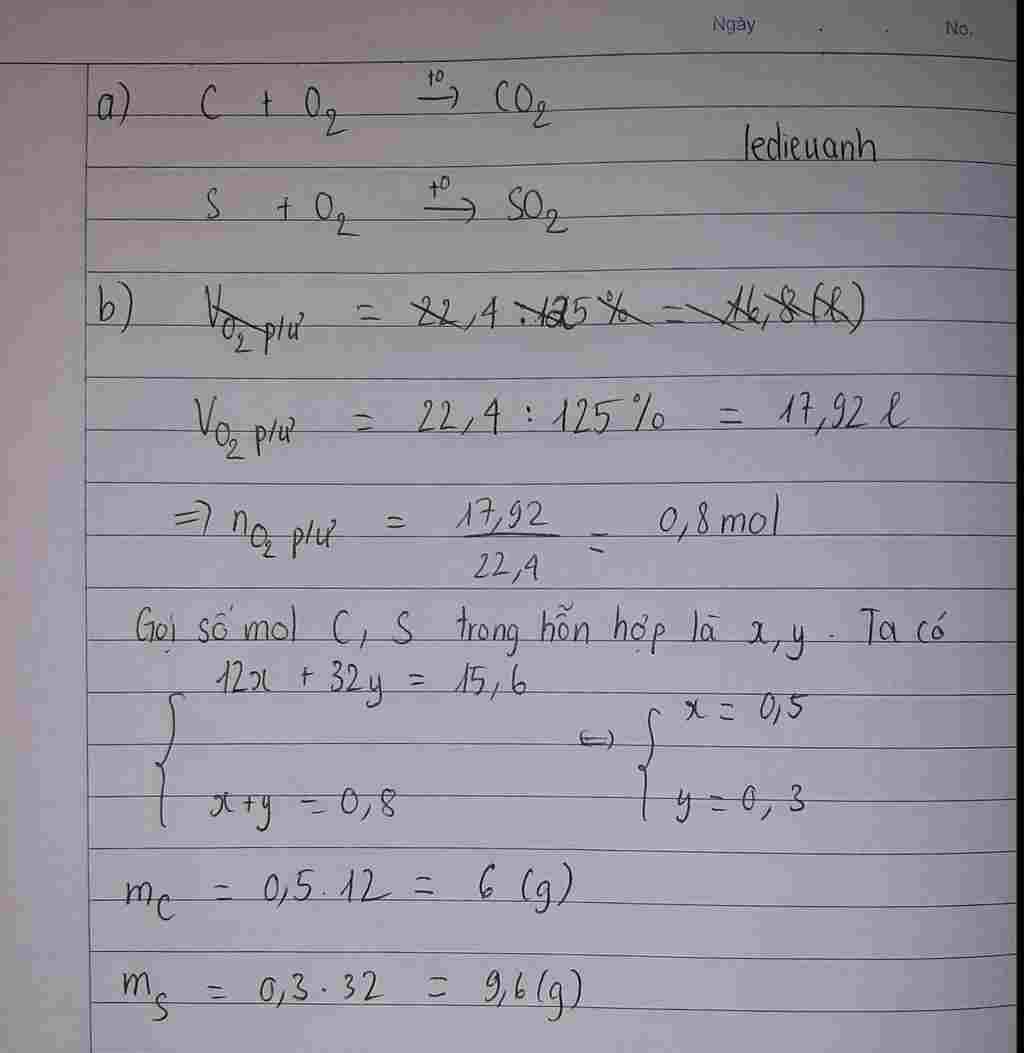 Ngày . . No.
a) C + O₂ →(t⁰) CO₂
ledieuanh
S + O₂ →(t⁰) SO₂
b) V_O₂ p/ứ = 22,4 : 125% = 16,8 (l)
V_O₂ p/ứ = 22,4 : 125% = 17,92 l
=> n_O₂ p/ứ = 17,92 / 22,4 = 0,8 mol
Gọi số mol C, S trong hỗn hợp là x, y. Ta có
{ 12x + 32y = 15,6
x + y = 0,8
<=> { x = 0,5
y = 0,3
m_C = 0,5 . 12 = 6 (g)
m_S = 0,3 . 32 = 9,6 (g)